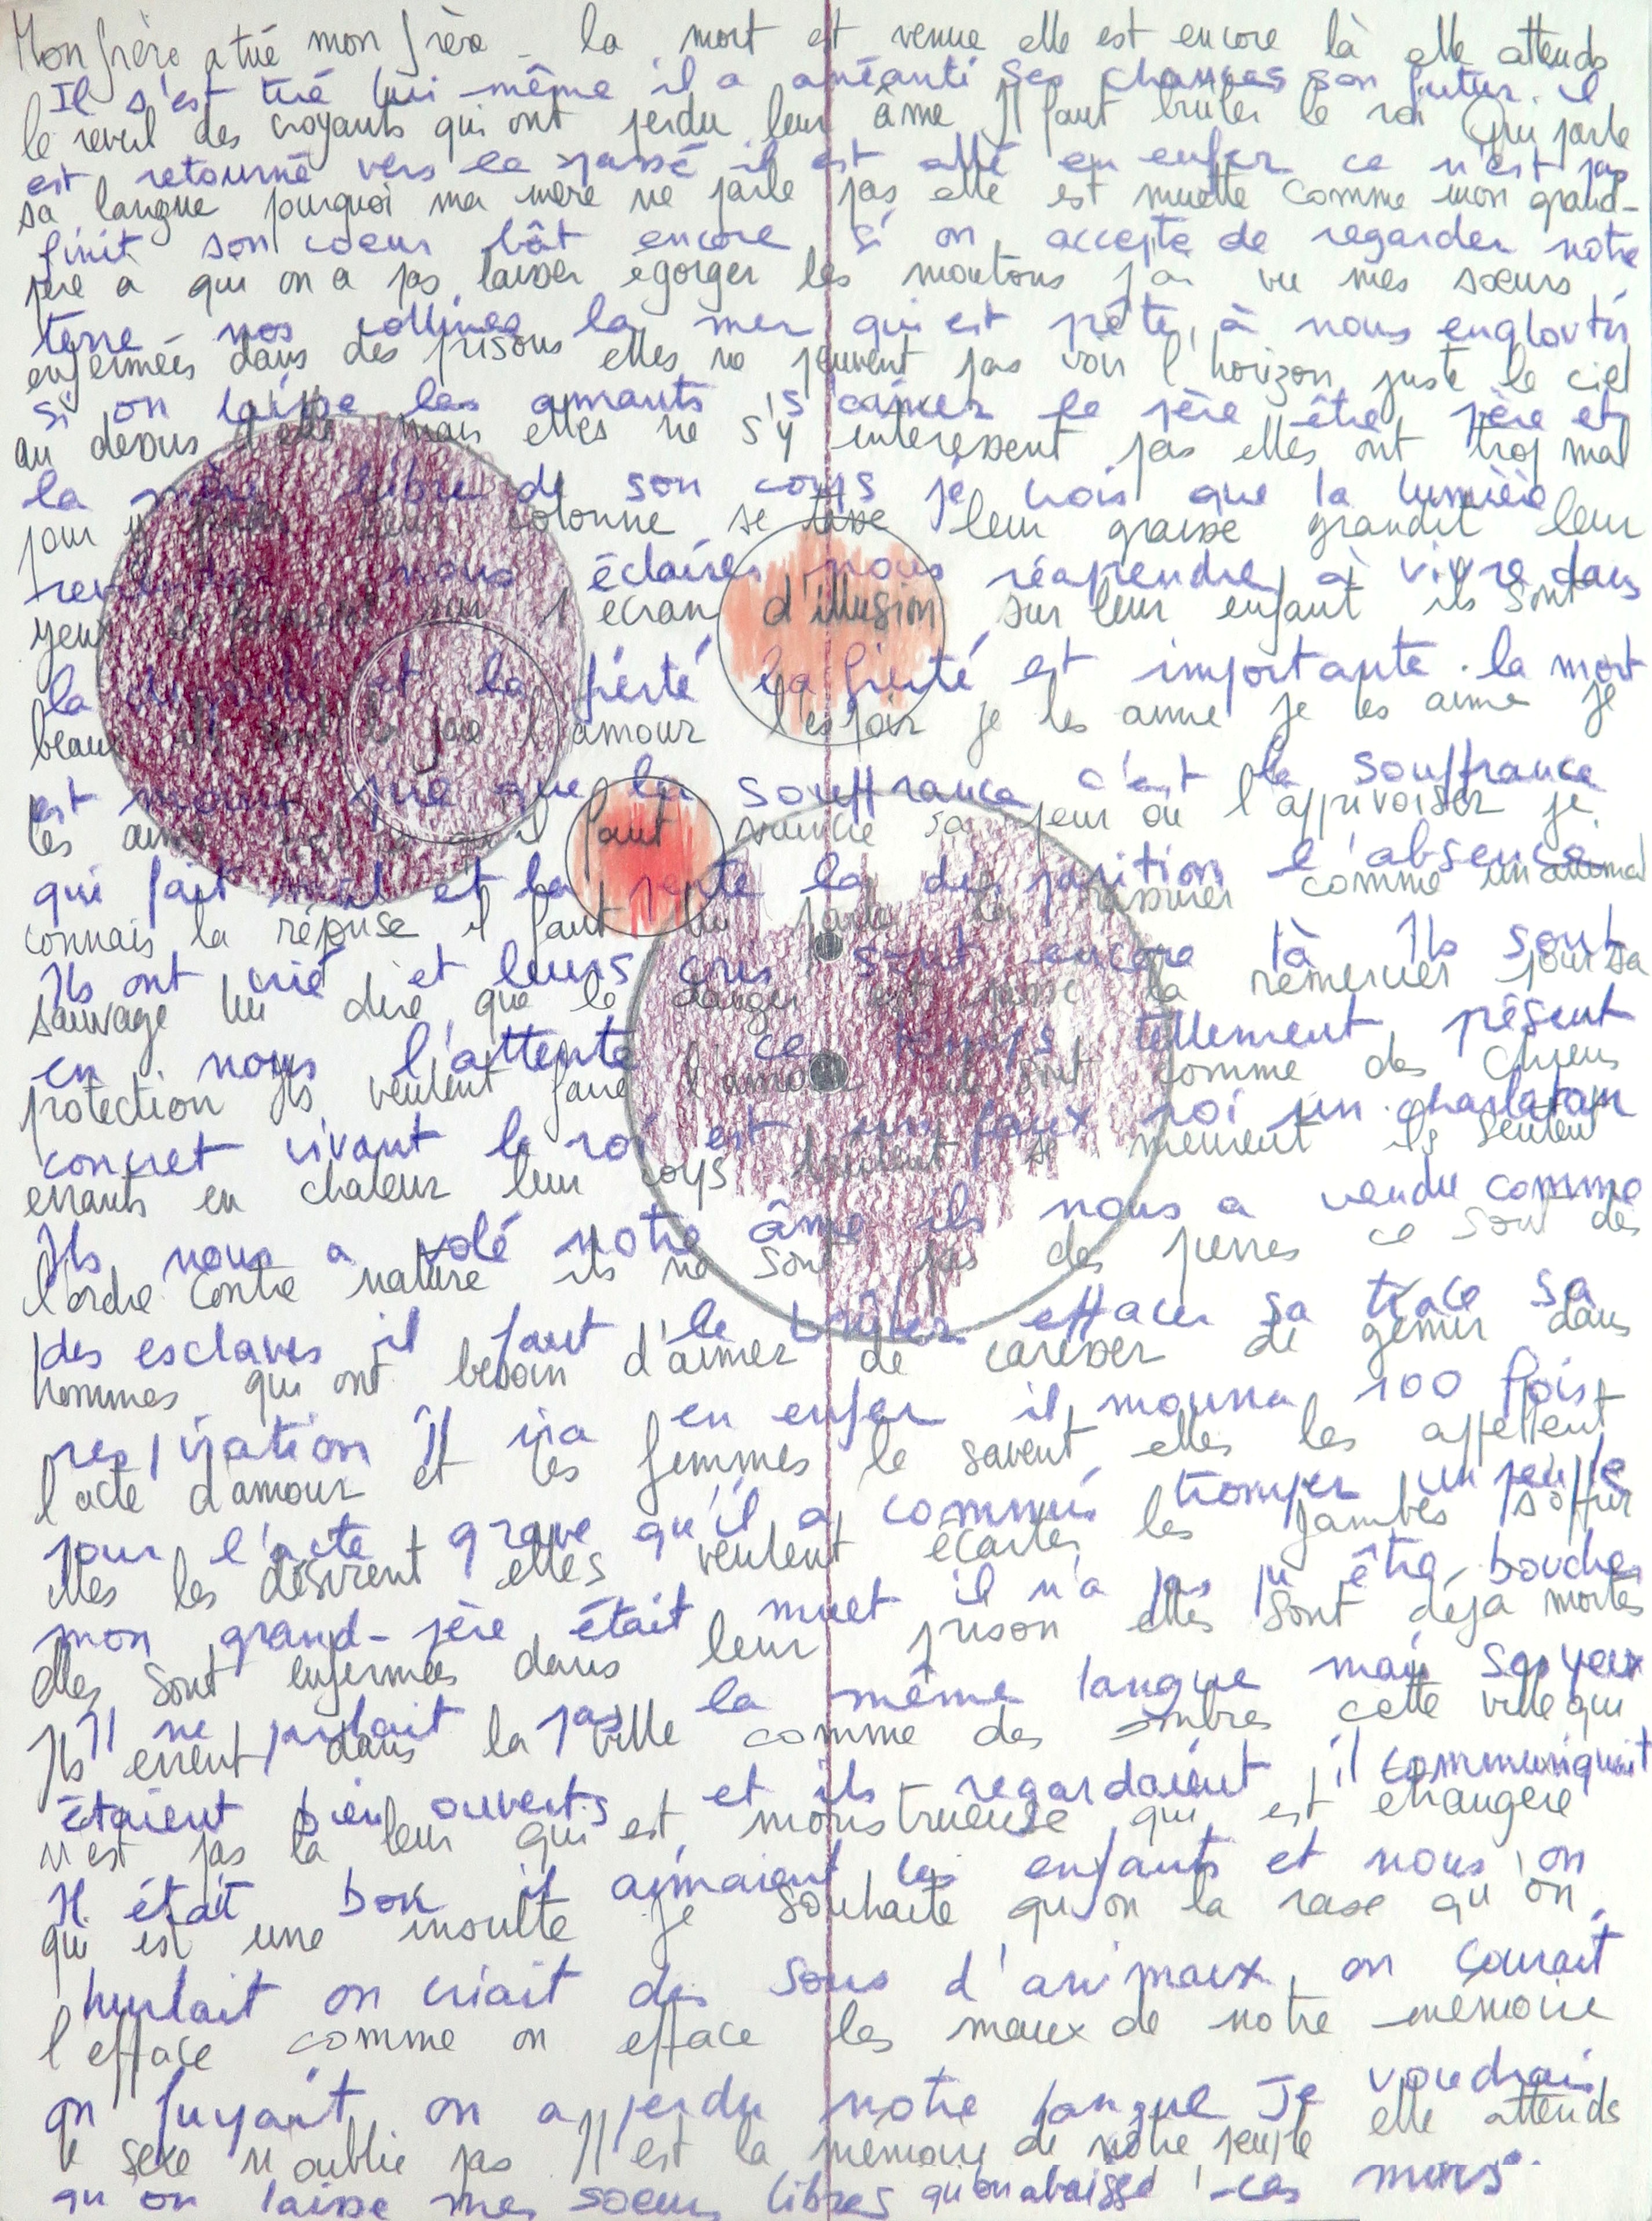 Mon frère a tué mon frère - la mort est venue elle est encore là elle attends
Il s'est tué lui même il a anéanti ses chances son futur. il
le reveil des croyants qui ont perdu leur âme Il faut bruler le roi Qui parle
est retourné vers le passé il est allé en enfer ce n'est pas
sa langue pourquoi ma mère ne parle pas elle est muette comme mon grand-
finit son coeur bât encore si on accepte de regarder notre
père à qui on a pas laisser égorger les moutons j'ai vu mes soeurs
terre - nos collines la mer qui est prête à nous engloutir
enfermées dans des prisons elles ne peuvent pas voir l'horizon juste le ciel
si on laisse les amants s'aimer le père être père et
au dessus d'elle mais elles ne s'y interessent pas elles ont trop mal
la mère libre de son corps je crois que la lumière
pour y leur colonne se tasse leur graisse grandit leur
nous éclairer nous réaprendre à vivre dans
yeux se l'écran d'illusion sur leur enfant ils sont
la et la fierté la fierté est importante. la mort
beaux ils sont la joie l'amour l'espoir je les aime je les aime je
est moins que la souffrance c'est la souffrance
les aime faut vaincre sa peur ou l'apprivoiser je
qui fait mal et la perte la disparition l'absence
connais la réponse il faut lui parler la rassurer comme un animal
Ils ont crié et leurs cris sont encore là Ils sont
sauvage lui dire que le danger est passé la remercier pour sa
en nous l'attente ce temps tellement présent
protection Ils veulent faire l'amour ils sont comme des chiens
concret vivant le roi est un faux roi un charlatan
errants en chaleur leur corps se meurent ils sentent
Ils nous a volé notre âme ils nous a vendu comme
l'ordre contre nature ils ne sont pas des pierres ce sont des
des esclaves il faut le brûler effacer sa trace sa
hommes qui ont besoin d'aimer de caresser de gémir dans
respiration Il ira en enfer il mourra 100 fois
l'acte d'amour et les femmes le savent elles les appellent
pour l'acte grave qu'il a commis tromper un peuple
elles les désirent elles veulent écarter les jambes s'offrir
mon grand-père était muet il n'a pas pu être boucher
elles sont enfermées dans leur prison elles sont déjà mortes
Il ne parlait pas la même langue mais ses yeux
Ils errent dans la ville comme des ombres cette ville qui
étaient bien ouverts et ils regardaient il communiquait
n'est pas la leur qui est monstrueuse qui est étrangère
Il était bon il aimaient les enfants et nous on
qui est une insulte je souhaite qu'on la rase qu'on
hurlait on criait des sons d'animaux on courait
l'efface comme on efface les maux de notre mémoire
on fuyait on a perdu notre langue Je voudrais
le sexe n'oublie pas Il est la mémoire de notre peuple elle attends
qu'on laisse mes soeurs libres qu'on abaisse ces murs.